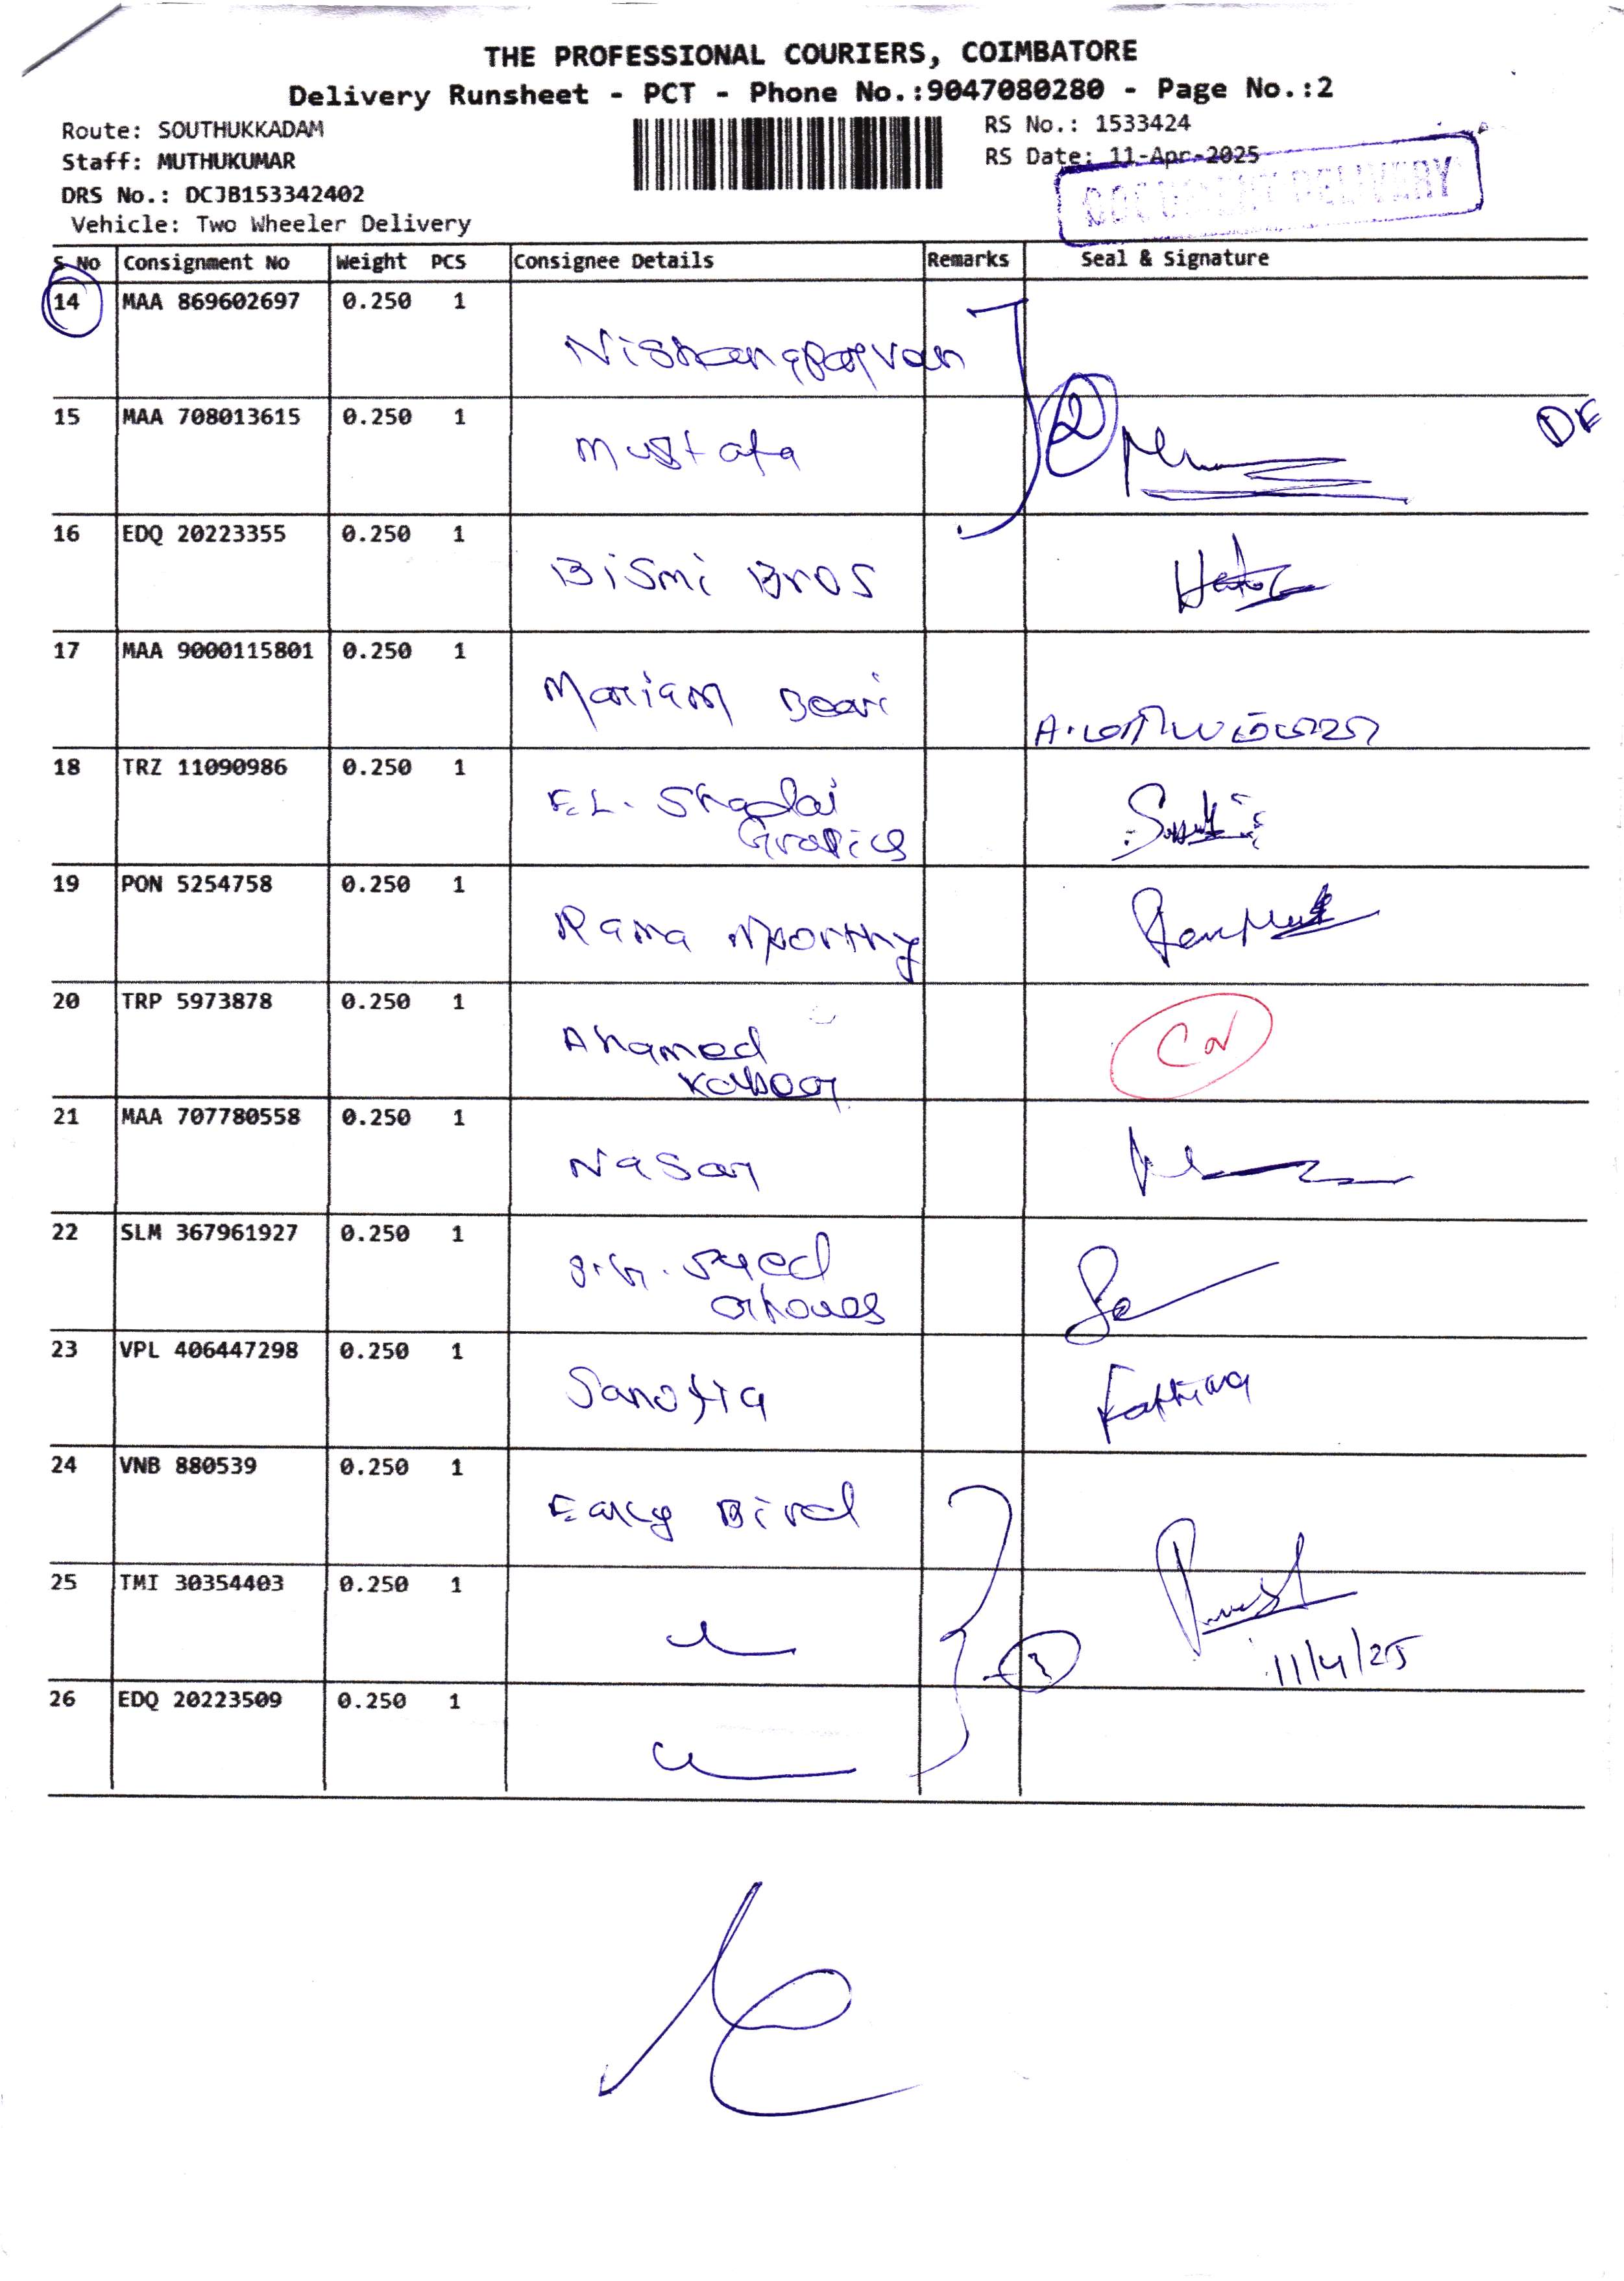 THE PROFESSIONAL COURIERS, COIMBATORE
Delivery Runsheet - PCT - Phone No.:9047080280 - Page No.:2
Route: SOUTHUKKADAM
RS No.: 1533424
Staff: MUTHUKUMAR
RS Date: 11-Apr-2025
DRS No.: DCJB153342402
DOCUMENT DELIVERY
Vehicle: Two Wheeler Delivery
S No Consignment No Weight PCS Consignee Details Remarks Seal & Signature
14 MAA 869602697 0.250 1
15 MAA 708013615 0.250 1
Mustafa 2
16 EDQ 20223355 0.250 1
Bismi Bros
17 MAA 9000115801 0.250 1
Mariam Beevi
18 TRZ 11090986 0.250 1
EL. Shadai
Grapics
19 PON 5254758 0.250 1
Rama Moorthy
20 TRP 5973878 0.250 1
Ahamed
21 MAA 707780558 0.250 1
Nasar
22 SLM 367961927 0.250 1
Syed
23 VPL 406447298 0.250 1
Sanofia Fathima
24 VNB 880539 0.250 1
Early Bird
25 TMI 30354403 0.250 1
3 11/4/25
26 EDQ 20223509 0.250 1